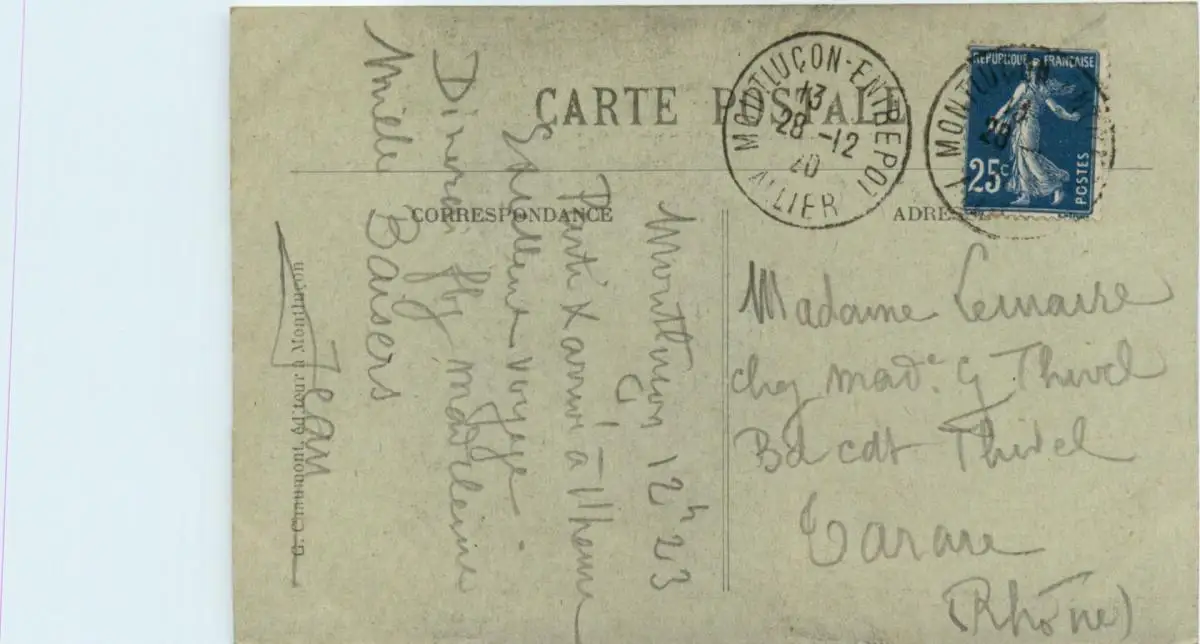 CARTE POSTALE
CORRESPONDANCE
ADRESSE
RÉPUBLIQUE FRANÇAISE
25c
POSTES
MONTLUÇON-ENTREPOT
13
28 -12
20
ALLIER
Montluçon 12h23
Parti & arrivé à l'heure
Excellent voyage.
Dinerai madeleine
Mille Baisers
Jean
G. Chaumont, éditeur à Montluçon
Madame Lemaire
chez made. G Thivel
Bd cdt Thivel
Tarare
(Rhône)